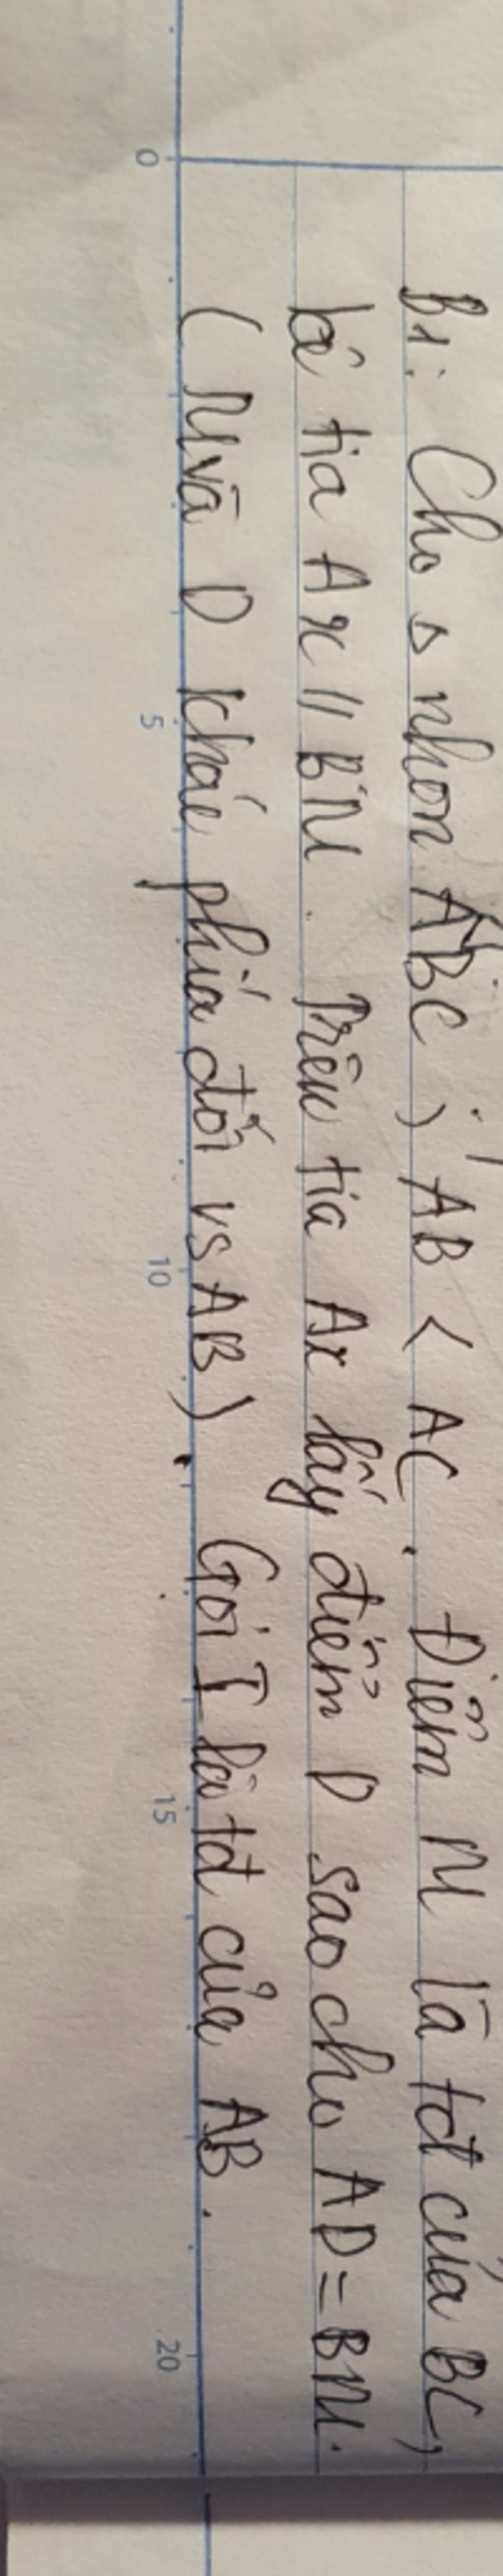 B1: Cho Δ nhọn ABC ; AB < AC. Điểm M là td của BC,
kẻ tia Ax // BM. Trên tia Ax lấy điểm D sao cho AD = BM.
(M và D khác phía đối vs AB). Gọi I là td của AB.
0 5 10 15 20